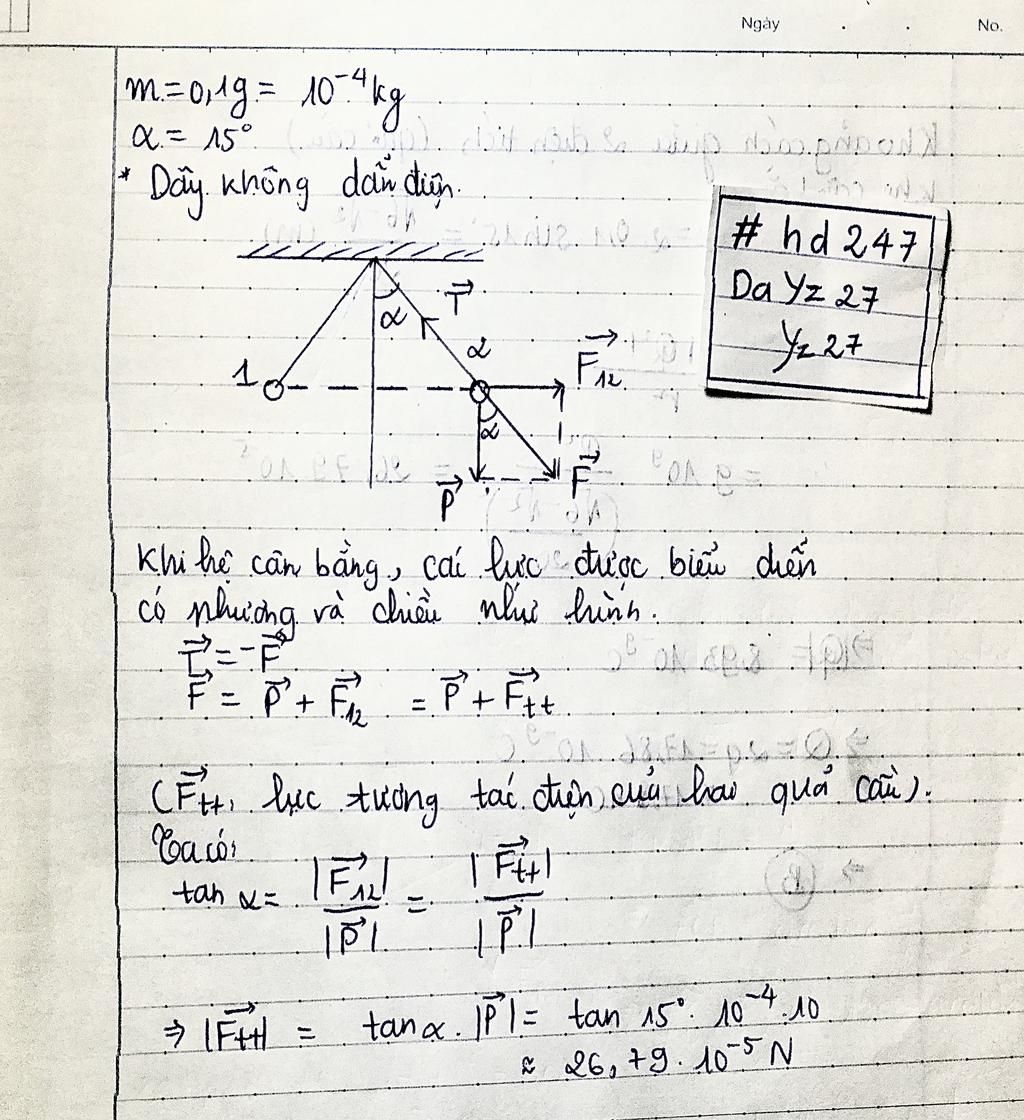 Ngày . . No.
m = 0,1g = 10⁻⁴ kg
α = 15°
* Dây không dẫn điện.
# hd 247
Da Yz 27
Yz 27
α
T⃗
1
α
F⃗₁₂
α
P⃗
F⃗
Khi hệ cân bằng, các lực được biểu diễn
có phương và chiều như hình.
T⃗ = -F⃗
F⃗ = P⃗ + F⃗₁₂ = P⃗ + F⃗tt
(F⃗tt, lực tương tác điện của hai quả cầu).
Ta có:
tan α = |F⃗₁₂| / |P⃗| = |F⃗tt| / |P⃗|
⇒ |F⃗tt| = tan α . |P⃗| = tan 15° . 10⁻⁴ . 10
≈ 26,79 . 10⁻⁵ N